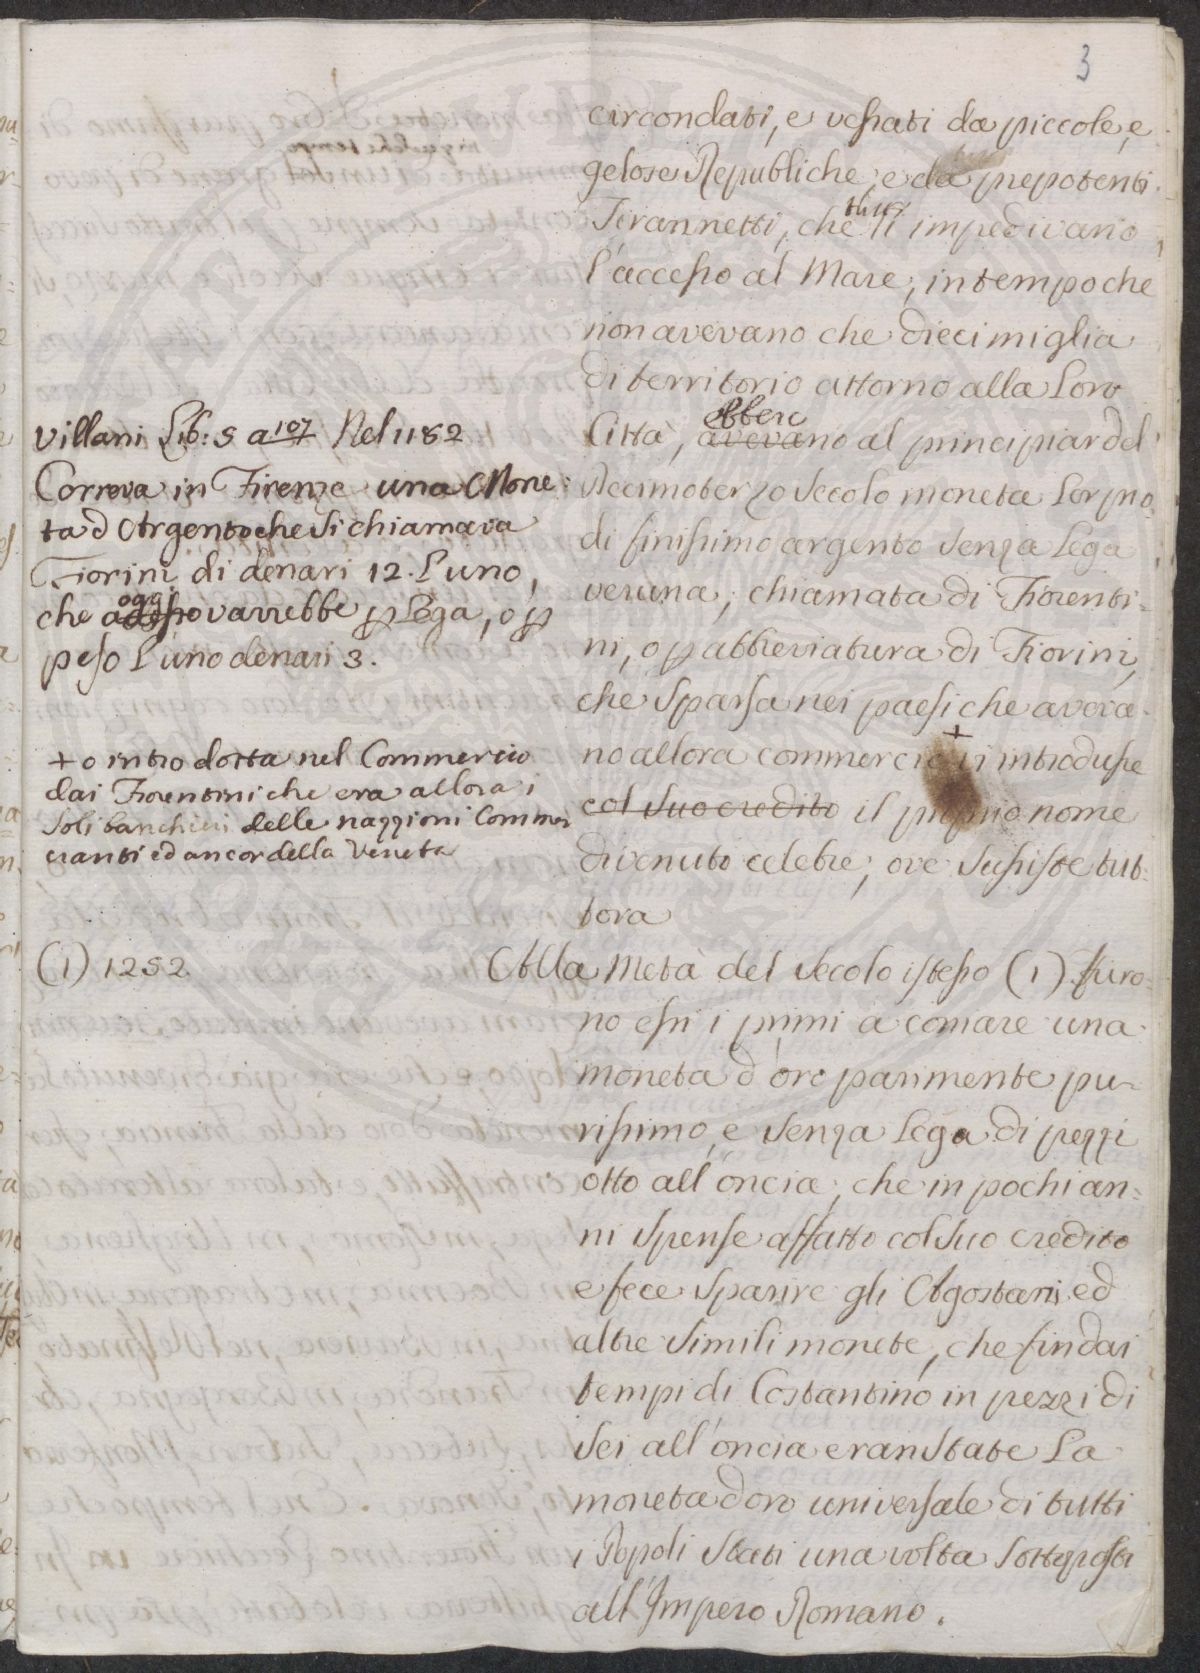 3
circondati, e vessati da piccole, e
gelose Republiche, e da prepotenti
Tirannetti, che tutti li impedivano
l'accesso al Mare, in tempo che
non avevano che dieci miglia
di territorio attorno alla Loro
Città, avevano ebbero al principiar del
Decimoterzo Secolo moneta Lor pro=
di finissimo argento senza Lega
veruna, chiamata di Fiorenti=
ni, o p abbreviatura di Fiorini,
che sparsa nei paesi che aveva=
no allora commercio + vi introdusse
col suo credito il proprio nome
divenuto celebre, ove sussiste tut=
tora
Villani Lib: 5 a 107 Nel 1182
Correva in Firenze una Mone=
ta d'Argento che si chiamava
Fiorini di denari 12. L'uno,
che adesso oggi varrebbe p Lega, o p
peso L'uno denari 3.
+ o introdotta nel Commercio
dai Fiorentini che era allora i
soli banchieri delle nazzioni Commer
cianti ed ancor della Veneta
(1) 1252
Alla Metà del secolo istesso (1) furo=
no essi i primi a coniare una
moneta d'oro parimente pu=
rissimo, e senza Lega di pezzi
otto all'oncia, che in pochi an=
ni spense affatto col suo credito
e fece sparire gli Agostari ed
altre simili monete, che fin dai
tempi di Costantino in pezzi di
sei all'oncia eran state La
moneta d'oro universale di tutti
i Popoli stati una volta sottoposti
all'Impero Romano.